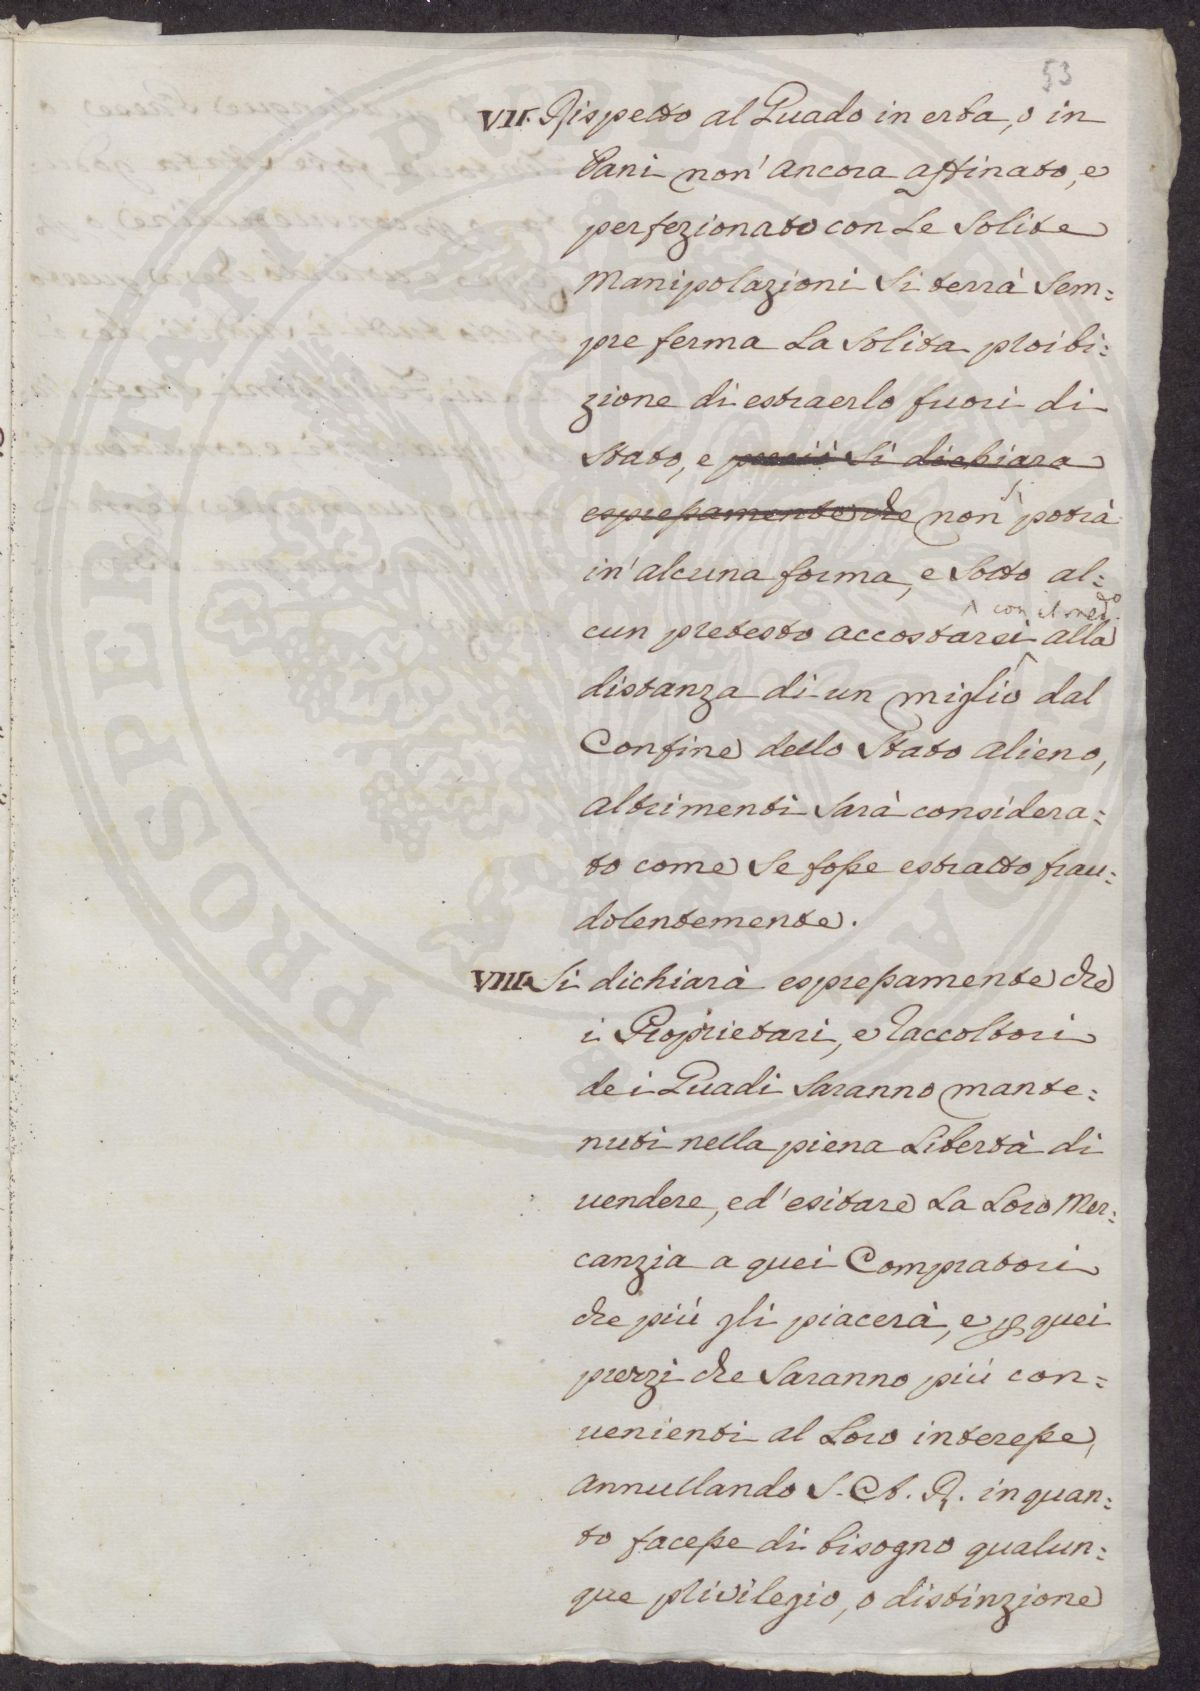 53
VII. Rispetto al Guado in erba, o in
Pani non' ancora affinato, e
perfezionato con le solite
Manipolazioni si terrà sem=
pre ferma la solita proibi=
zione di estraerlo fuori di
Stato, e perciò si dichiara
espressamente che non potrà
in' alcuna forma, e sotto al=
con il med.o
cun pretesto accostarsi alla
distanza di un miglio dal
Confine dello Stato alieno,
altrimenti sarà considera=
to come se fosse estratto frau=
dolentemente.
VIII. Si dichiarà espressamente che
i Proprietari, e Raccoltori
dei Guadi saranno mante=
nuti nella piena libertà di
vendere, ed' esitare la loro Mer=
canzia a quei Compratori
che più gli piacerà, e p quei
prezzi che saranno più con=
venienti al loro interesse,
annullando S. A. R. in quan=
to facesse di bisogno qualun=
que privilegio, o distinzione
PROSPERITATI PUBLICAE AUGENDAE